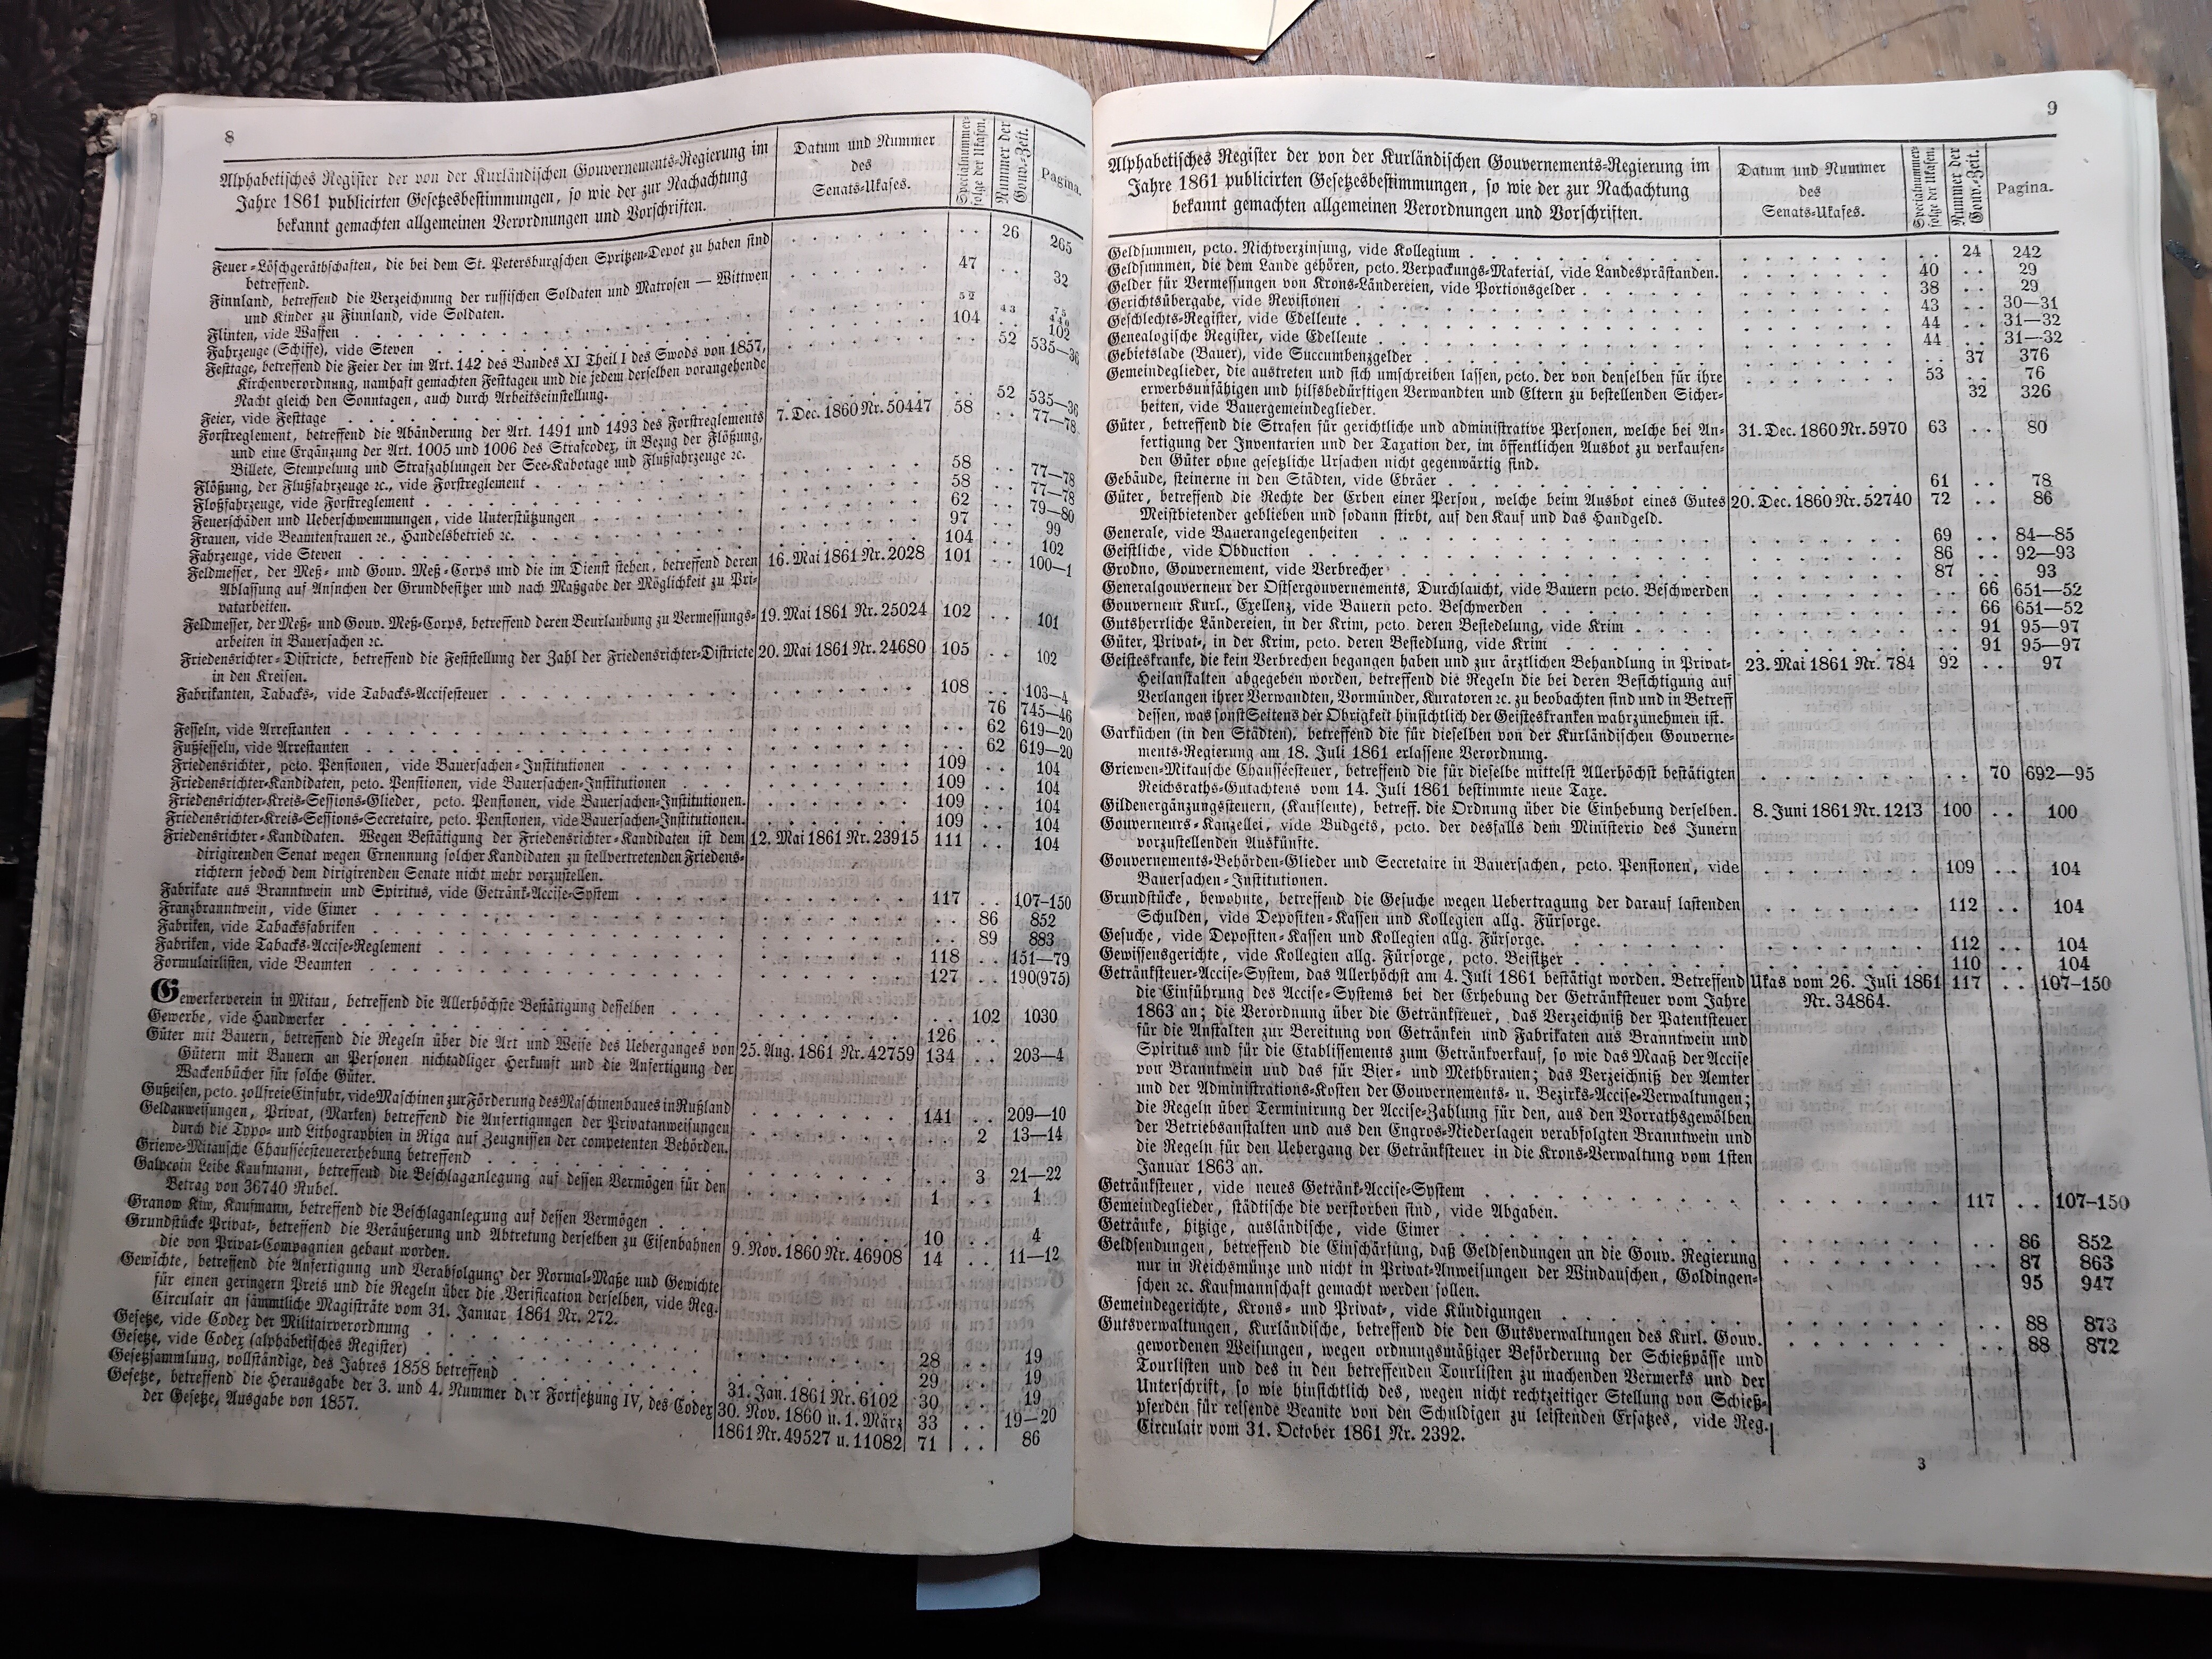 8
Alphabetisches Register der von der Kurländischen Gouvernements-Regierung im
Jahre 1861 publicirten Gesetzesbestimmungen, so wie der zur Nachachtung
bekannt gemachten allgemeinen Verordnungen und Vorschriften.
Datum und Nummer
des
Senats-Ukases.
Specialnummer-
folge der Ukasen.
Nummer der
Gouv.-Zeit.
Pagina.
Feuer-Löschgeräthschaften, die bei dem St. Petersburgschen Spritzen-Depot zu haben sind . . 26 265
betreffend.
Finnland, betreffend die Verzeichnung der russischen Soldaten und Matrosen — Wittwen 47 . . 32
und Kinder zu Finnland, vide Soldaten.
Flinten, vide Waffen 52 43 75
Fahrzeuge (Schiffe), vide Steven 104 . . 102
Festtage, betreffend die Feier der im Art. 142 des Bandes XI Theil I des Swods von 1857, . . 52 535—36
Kirchenverordnung, namhaft gemachten Festtagen und die jedem derselben vorangehende
Nacht gleich den Sonntagen, auch durch Arbeitseinstellung.
Feier, vide Festtage . . 52 535—36
Forstreglement, betreffend die Abänderung der Art. 1491 und 1493 des Forstreglements 7. Dec. 1860 Nr. 50447 58 . . 77—78
und eine Ergänzung der Art. 1005 und 1006 des Strafcodex, in Bezug der Flößung,
Billete, Stempelung und Strafzahlungen der See-Kabotage und Flußfahrzeuge ꝛc.
Flößung, der Flußfahrzeuge ꝛc., vide Forstreglement 58 . . 77—78
Floßfahrzeuge, vide Forstreglement 58 . . 77—78
Feuerschäden und Ueberschwemmungen, vide Unterstützungen 62 . . 79—80
Frauen, vide Beamtenfrauen ꝛc., Handelsbetrieb ꝛc. 97 . . 99
Fahrzeuge, vide Steven 104 . . 102
Feldmesser, der Meß- und Gouv. Meß-Corps und die im Dienst stehen, betreffend deren 16. Mai 1861 Nr. 2028 101 . . 100—1
Ablassung auf Ansuchen der Grundbesitzer und nach Maßgabe der Möglichkeit zu Pri-
vatarbeiten.
Feldmesser, der Meß- und Gouv. Meß-Corps, betreffend deren Beurlaubung zu Vermessungs- 19. Mai 1861 Nr. 25024 102 . . 101
arbeiten in Bauersachen ꝛc.
Friedensrichter-Districte, betreffend die Feststellung der Zahl der Friedensrichter-Districte 20. Mai 1861 Nr. 24680 105 . . 102
in den Kreisen.
Fabrikanten, Tabacks-, vide Tabacks-Accisesteuer 108 . . 103—4
76 745—46
Fesseln, vide Arrestanten . . 62 619—20
Fußfesseln, vide Arrestanten . . 62 619—20
Friedensrichter, pcto. Pensionen, vide Bauersachen-Institutionen 109 . . 104
Friedensrichter-Kandidaten, pcto. Pensionen, vide Bauersachen-Institutionen 109 . . 104
Friedensrichter-Kreis-Sessions-Glieder, pcto. Pensionen, vide Bauersachen-Institutionen. 109 . . 104
Friedensrichter-Kreis-Sessions-Secretaire, pcto. Pensionen, vide Bauersachen-Institutionen. 109 . . 104
Friedensrichter-Kandidaten. Wegen Bestätigung der Friedensrichter-Kandidaten ist dem 12. Mai 1861 Nr. 23915 111 . . 104
dirigirenden Senat wegen Ernennung solcher Kandidaten zu stellvertretenden Friedens-
richtern jedoch dem dirigirenden Senate nicht mehr vorzustellen.
Fabrikate aus Branntwein und Spiritus, vide Getränk-Accise-System 117 . . 107-150
Franzbranntwein, vide Eimer . . 86 852
Fabriken, vide Tabacksfabriken . . 89 883
Fabriken, vide Tabacks-Accise-Reglement 118 . . 151—79
Formulairlisten, vide Beamten 127 . . 190(975)
Gewerkerverein in Mitau, betreffend die Allerhöchste Bestätigung desselben . . 102 1030
Gewerbe, vide Handwerker 126 . .
Güter mit Bauern, betreffend die Regeln über die Art und Weise des Ueberganges von 25. Aug. 1861 Nr. 42759 134 . . 203—4
Gütern mit Bauern an Personen nichtadliger Herkunft und die Anfertigung der
Wackenbücher für solche Güter.
Gußeisen, pcto. zollfreie Einfuhr, vide Maschinen zur Förderung des Maschinenbaues in Rußland 141 . . 209—10
Geldanweisungen, Privat, (Marken) betreffend die Anfertigungen der Privatanweisungen . . 2 13—14
durch die Typo- und Lithographien in Riga auf Zeugnissen der competenten Behörden.
Griewe-Mitausche Chausséesteuererhebung betreffend . . 3 21—22
Galpcoin Leibe Kaufmann, betreffend die Beschlaganlegung auf dessen Vermögen für den 1 . . 1
Betrag von 36740 Rubel.
Granow Kiw, Kaufmann, betreffend die Beschlaganlegung auf dessen Vermögen 10 . . 4
Grundstücke Privat-, betreffend die Veräußerung und Abtretung derselben zu Eisenbahnen 9. Nov. 1860 Nr. 46908 14 . . 11—12
die von Privat-Compagnien gebaut worden.
Gewichte, betreffend die Anfertigung und Verabfolgung der Normal-Maße und Gewichte
für einen geringern Preis und die Regeln über die Verification derselben, vide Reg.
Circulair an sämmtliche Magisträte vom 31. Januar 1861 Nr. 272.
Gesetze, vide Codex der Militairverordnung 28 . . 19
Gesetze, vide Codex (alphabetisches Register) 29 . . 19
Gesetzsammlung, vollständige, des Jahres 1858 betreffend 31. Jan. 1861 Nr. 6102 30 . . 19
Gesetze, betreffend die Herausgabe der 3. und 4. Nummer der Fortsetzung IV, des Codex 30. Nov. 1860 u. 1. März 33 . . 19—20
der Gesetze, Ausgabe von 1857. 1861 Nr. 49527 u. 11082 71 . . 86
9
Alphabetisches Register der von der Kurländischen Gouvernements-Regierung im
Jahre 1861 publicirten Gesetzesbestimmungen, so wie der zur Nachachtung
bekannt gemachten allgemeinen Verordnungen und Vorschriften.
Datum und Nummer
des
Senats-Ukases.
Specialnummer-
folge der Ukasen.
Nummer der
Gouv.-Zeit.
Pagina.
Geldsummen, pcto. Nichtverzinsung, vide Kollegium . . 24 242
Geldsummen, die dem Lande gehören, pcto. Verpackungs-Material, vide Landesprästanden. 40 . . 29
Gelder für Vermessungen von Krons-Ländereien, vide Portionsgelder 38 . . 29
Gerichtsübergabe, vide Revisionen 43 . . 30—31
Geschlechts-Register, vide Edelleute 44 . . 31—32
Genealogische Register, vide Edelleute 44 . . 31—32
Gebietslade (Bauer), vide Succumbenzgelder . . 37 376
Gemeindeglieder, die austreten und sich umschreiben lassen, pcto. der von denselben für ihre 53 . . 76
erwerbsunfähigen und hilfsbedürftigen Verwandten und Eltern zu bestellenden Sicher- 32 326
heiten, vide Bauergemeindeglieder.
Güter, betreffend die Strafen für gerichtliche und administrative Personen, welche bei An- 31. Dec. 1860 Nr. 5970 63 . . 80
fertigung der Inventarien und der Taxation der, im öffentlichen Ausbot zu verkaufen-
den Güter ohne gesetzliche Ursachen nicht gegenwärtig sind.
Gebäude, steinerne in den Städten, vide Ebräer 61 . . 78
Güter, betreffend die Rechte der Erben einer Person, welche beim Ausbot eines Gutes 20. Dec. 1860 Nr. 52740 72 . . 86
Meistbietender geblieben und sodann stirbt, auf den Kauf und das Handgeld.
Generale, vide Bauerangelegenheiten 69 . . 84—85
Geistliche, vide Obduction 86 . . 92—93
Grodno, Gouvernement, vide Verbrecher 87 . . 93
Generalgouverneur der Ostseegouvernements, Durchlaucht, vide Bauern pcto. Beschwerden . . 66 651—52
Gouverneur Kurl., Exellenz, vide Bauern pcto. Beschwerden . . 66 651—52
Gutsherrliche Ländereien, in der Krim, pcto. deren Besiedelung, vide Krim . . 91 95—97
Güter, Privat-, in der Krim, pcto. deren Besiedlung, vide Krim . . 91 95—97
Geisteskranke, die kein Verbrechen begangen haben und zur ärztlichen Behandlung in Privat- 23. Mai 1861 Nr. 784 92 . . 97
Heilanstalten abgegeben worden, betreffend die Regeln die bei deren Besichtigung auf
Verlangen ihrer Verwandten, Vormünder, Kuratoren ꝛc. zu beobachten sind und in Betreff
dessen, was sonst Seitens der Obrigkeit hinsichtlich der Geisteskranken wahrzunehmen ist.
Garküchen (in den Städten), betreffend die für dieselben von der Kurländischen Gouverne-
ments-Regierung am 18. Juli 1861 erlassene Verordnung.
Griewen-Mitausche Chausséesteuer, betreffend die für dieselbe mittelst Allerhöchst bestätigten . . 70 692—95
Reichsraths-Gutachtens vom 14. Juli 1861 bestimmte neue Taxe.
Gildenergänzungssteuern, (Kaufleute), betreff. die Ordnung über die Einhebung derselben. 8. Juni 1861 Nr. 1213 100 . . 100
Gouverneurs-Kanzellei, vide Budgets, pcto. der desfalls dem Ministerio des Innern
vorzustellenden Auskünfte.
Gouvernements-Behörden-Glieder und Secretaire in Bauersachen, pcto. Pensionen, vide 109 . . 104
Bauersachen-Institutionen.
Grundstücke, bewohnte, betreffend die Gesuche wegen Uebertragung der darauf lastenden 112 . . 104
Schulden, vide Depositen-Kassen und Kollegien allg. Fürsorge.
Gesuche, vide Depositen-Kassen und Kollegien allg. Fürsorge. 112 . . 104
Gewissensgerichte, vide Kollegien allg. Fürsorge, pcto. Beisitzer 110 . . 104
Getränksteuer-Accise-System, das Allerhöchst am 4. Juli 1861 bestätigt worden. Betreffend Ukas vom 26. Juli 1861 117 . . 107-150
die Einführung des Accise-Systems bei der Erhebung der Getränksteuer vom Jahre Nr. 34864.
1863 an; die Verordnung über die Getränksteuer, das Verzeichniß der Patentsteuer
für die Anstalten zur Bereitung von Getränken und Fabrikaten aus Branntwein und
Spiritus und für die Etablissements zum Getränkverkauf, so wie das Maaß der Accise
von Branntwein und das für Bier- und Methbrauen; das Verzeichniß der Aemter
und der Administrations-Kosten der Gouvernements- u. Bezirks-Accise-Verwaltungen;
die Regeln über Terminirung der Accise-Zahlung für den, aus den Vorrathsgewölben
der Betriebsanstalten und aus den Engros-Niederlagen verabfolgten Branntwein und
die Regeln für den Uebergang der Getränksteuer in die Krons-Verwaltung vom 1sten
Januar 1863 an.
Getränksteuer, vide neues Getränk-Accise-System 117 . . 107-150
Gemeindeglieder, städtische die verstorben sind, vide Abgaben.
Getränke, hitzige, ausländische, vide Eimer . . 86 852
Geldsendungen, betreffend die Einschärfung, daß Geldsendungen an die Gouv. Regierung 87 863
nur in Reichsmünze und nicht in Privat-Anweisungen der Windauschen, Goldingen- 95 947
schen ꝛc. Kaufmannschaft gemacht werden sollen.
Gemeindegerichte, Krons- und Privat-, vide Kündigungen . . 88 873
Gutsverwaltungen, Kurländische, betreffend die den Gutsverwaltungen des Kurl. Gouv. . . 88 872
gewordenen Weisungen, wegen ordnungsmäßiger Beförderung der Schießpässe und
Tourlisten und des in den betreffenden Tourlisten zu machenden Vermerks und der
Unterschrift, so wie hinsichtlich des, wegen nicht rechtzeitiger Stellung von Schieß-
pferden für reisende Beamte von den Schuldigen zu leistenden Ersatzes, vide Reg.
Circulair vom 31. October 1861 Nr. 2392.
3